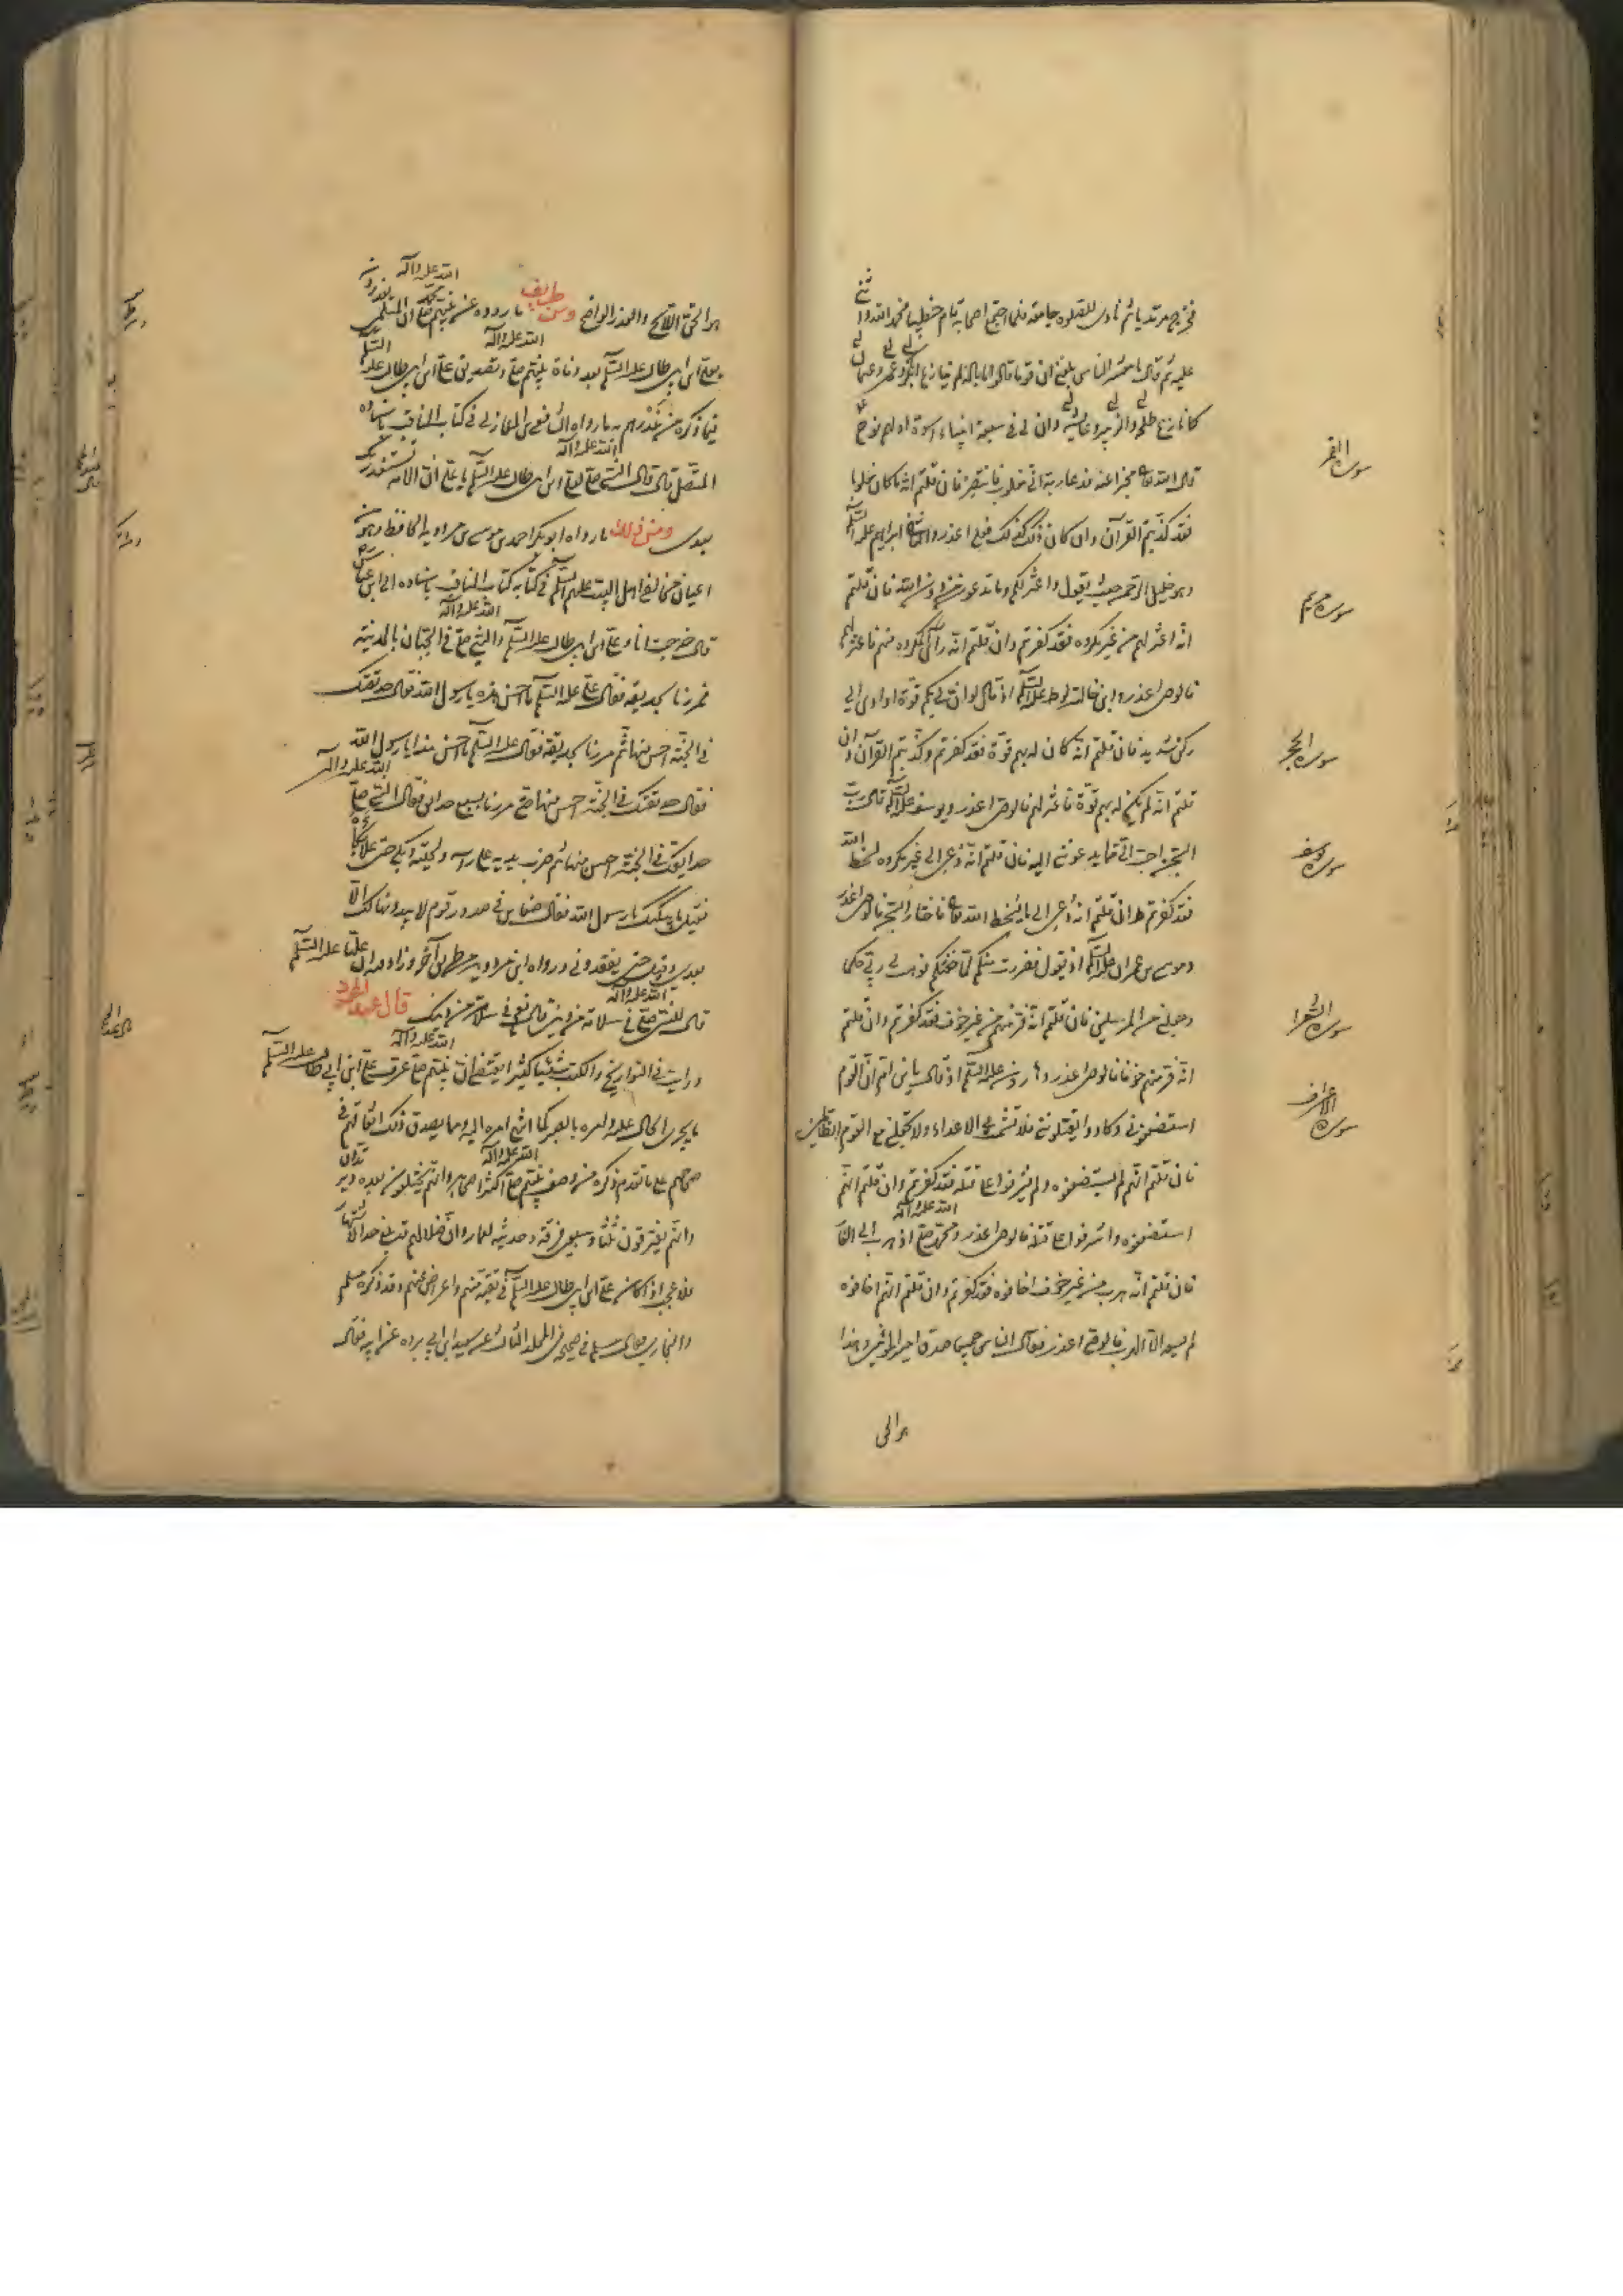 فخرج مرتديا ثم نادى للصلوة جامعة فلما اجتمع اصحابه قام خطيبا فحمد الله واثنى
عليه ثم قال يا معشر الناس بلغني ان قوما قالوا ما باله لم ينازع ابا بكر وعمر وعثمان
كما نازع طلحة والزبير وعايشة وان لي في سبعة انبياء اسوة اولهم نوح
قال الله تعالى مخبرا عنه فدعا ربه اني مغلوب فانتصر فان قلتم انه ما كان مغلوبا
سورة القمر
فقد كذبتم القرآن وان كان ذلك كذلك فعلي اعذر والثاني ابراهيم عليه السلام
وهو خليل الرحمن حيث يقول واعتزلكم وما تدعون من دون الله فان قلتم
سورة مريم
انه اعتزلهم من غير مكروه فقد كفرتم وان قلتم انه رأى المكروه منهم فاعتزلهم
فالوصي اعذر وابن خالته لوط عليه السلام اذ قال لو ان لي بكم قوة او اوي الى
ركن شديد فان قلتم انه كان له بهم قوة فقد كفرتم وكذبتم القرآن وان
سورة الحجر
قلتم انه لم يكن له بهم قوة فاعتزلهم فالوصي اعذر ويوسف عليه السلام قال رب
السجن احب الي مما يدعونني اليه فان قلتم انه دعي الى غير مكروه لسخط الله
سورة يوسف
فقد كفرتم وان قلتم انه دعي الى ما يسخط الله تعالى فاختار السجن فالوصي اعذر
وموسى بن عمران عليه السلام اذ يقول ففررت منكم لما خفتكم فوهب لي ربي حكما
وجعلني من المرسلين فان قلتم انه فر منهم من غير خوف فقد كفرتم وان قلتم
سورة الشعرا
انه فر منهم خوفا فالوصي اعذر وهارون عليه السلام اذ قال يا ابن ام ان القوم
استضعفوني وكادوا يقتلونني فلا تشمت بي الاعداء ولا تجعلني مع القوم الظالمين
سورة الاعراف
فان قلتم انهم لم يستضعفوه ولم يشرفوا على قتله فقد كفرتم وان قلتم انهم
استضعفوه واشرفوا على قتله فالوصي اعذر ومحمد صلى الله عليه وآله اذ هرب الى الغار
فان قلتم انه هرب من غير خوف اخافوه فقد كفرتم وان قلتم انهم اخافوه
لم يسعه الا الهرب فالوصي اعذر فقال الناس جميعا صدق امير المؤمنين وهذا
هو الحق
هو الحق اللايح والعذر الواضح ومن طرايف ما رووه عن نبيهم محمد صلى الله عليه وآله ان المسلمين يغدرون
بعلي ابن ابي طالب عليه السلام بعد وفاة نبيهم صلى الله عليه وآله وتصديق علي ابن ابي طالب عليه السلام
فيما ذكره من غدرهم به ما رواه الشافعي ابن المغازلي في كتاب المناقب باسناده
المتصل قال قال النبي صلى الله عليه وآله لعلي ابن ابي طالب عليه السلام يا علي ان الامة ستغدر بك
بعدي ومن ذلك ما رواه ابو بكر احمد بن موسى بن مردويه الحافظ وهو من
اعيان مخالفي اهل البيت عليهم السلام في كتابه كتاب المناقب باسناده الى ابن عباس
قال خرجت انا وعلي ابن ابي طالب عليه السلام والنبي صلى الله عليه وآله في الجنان بالمدينة
فمررنا بحديقة فقال علي عليه السلام ما احسن هذه يا رسول الله فقال حديقتك
في الجنة احسن منها ثم مررنا بحديقة فقال علي عليه السلام ما احسن هذا يا رسول الله
فقال حديقتك في الجنة احسن منها حتى مررنا بسبع حدايق فقال النبي صلى الله عليه وآله
حدايقك في الجنة احسن منها ثم ضرب بيديه على رأسه ولحيته وبكى حتى علا بكاؤه
فقيل ما يبكيك يا رسول الله فقال ضغاين في صدور قوم لا يبدونها لك الا
بعدي حتى يفقدوني ورواه ابن مردويه من طريق آخر وزاد فيه ان عليا عليه السلام
قال للنبي صلى الله عليه وآله في سلامة من ديني قال نعم في سلامة من دينك قال عبد المحمود
ورايت في التواريخ والكتب شيئا كثيرا يقتضي ان نبيهم صلى الله عليه وآله عرف علي ابن ابي طالب عليه السلام
ما يجري الحال عليه وامره بالصبر كما انتهى امره اليه ومما يصدق ذلك
على ما تقدم ذكره من وصف نبيهم صلى الله عليه وآله اكثر اصحابه وانهم يختلفون بعده
وانهم يفترقون ثلثا وسبعين فرقة وحديثه لعمار وان ضلالهم قد بلغ حد
فلا عجب اذا كان من علي ابن ابي طالب عليه السلام في تقية منهم واعراض عنهم وقد ذكره مسلم
والبخاري قال مسلم في صحيحه في المجلد الثالث عن سعيد ابن ابي برده عن ابيه فقال